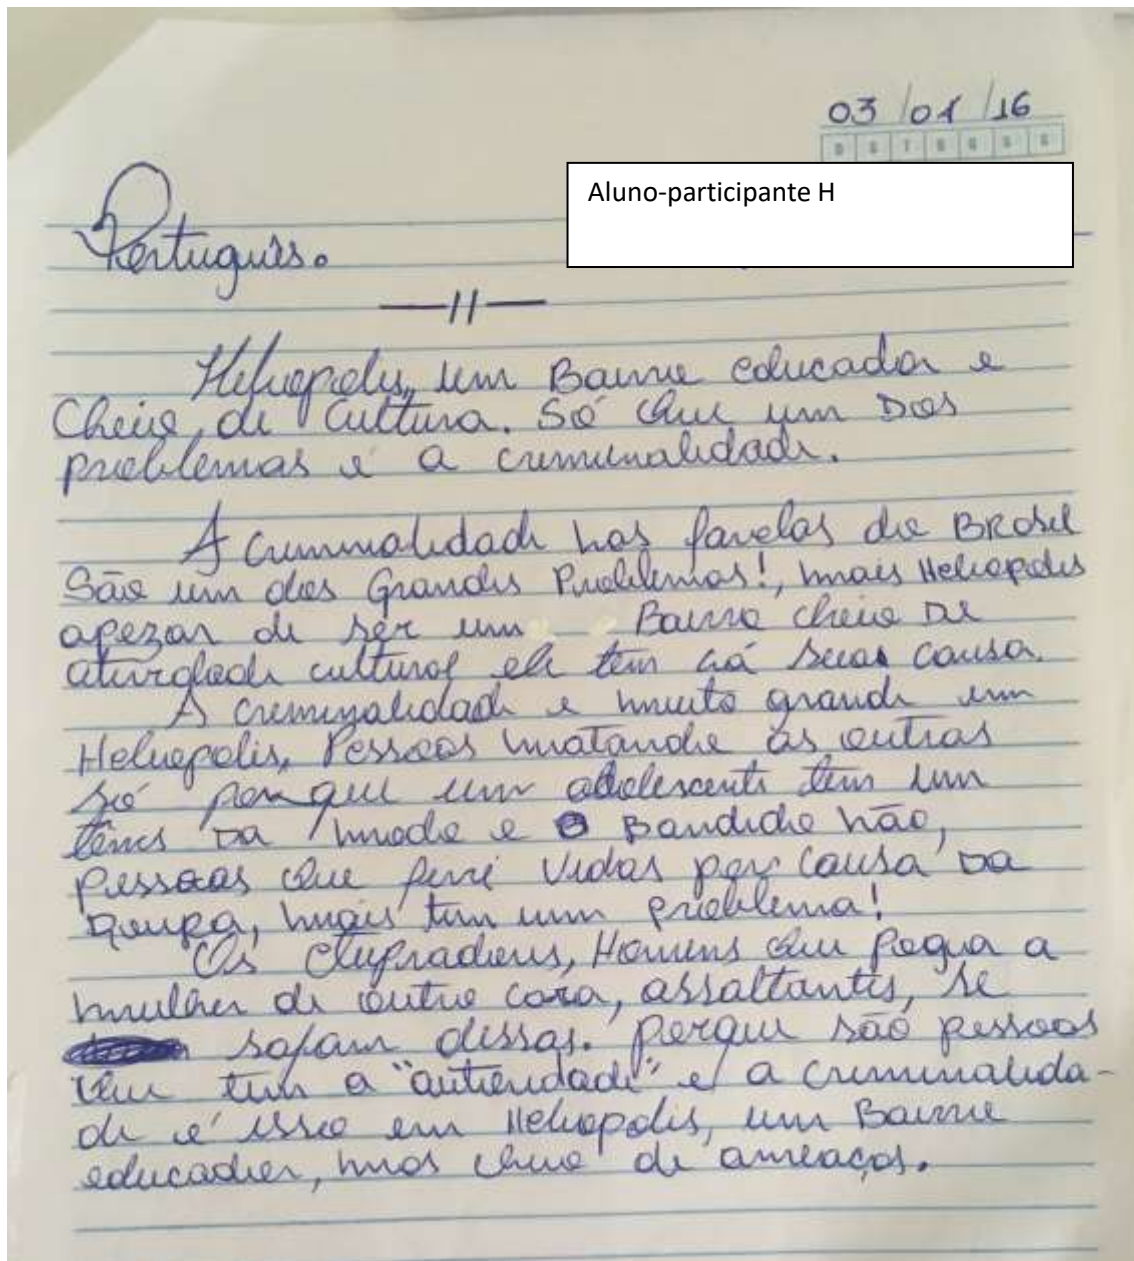 03/01/16
D S T Q Q S S
Aluno-participante H
Português.
—11—
Heliopolis, um Bairro educador e
Cheio de Cultura. Só que um Dos
problemas é a criminalidade.
A criminalidade nas favelas do BRasil
São um dos Grandes Problemas!, mais Heliopolis
apezar de ser um Bairro cheio De
atividade cultural ele tem cá suas causa.
A criminalidade e muito grande em
Heliopolis, Pessoas matando as outras
só porque um adolescente tem um
tênis Da moda e o Bandido não,
pessoas que ferre vidas por causa Da
Roupa, mais tem um problema!
Os Homens que pegua a
mulher de outro cara, assaltantes, se
safam dessas. Porque são pessoas
que tem a "autoridade" e a criminalida-
de é isso em Heliopolis, um Bairro
educador, mas cheio de ameaças.